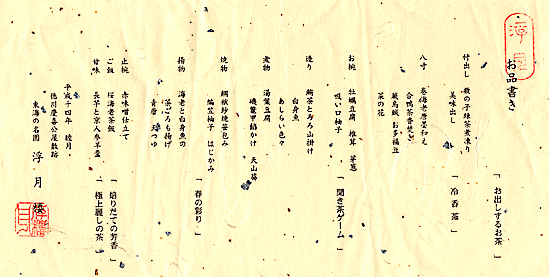 お品書き
「 お出しするお茶 」
付出し 数の子緑茶煮凍り
美味出し
「 冷香茶 」
八寸 巻海老唐墨和え
合鴨茶香焚き
お多福豆
菜の花
お椀 牡蠣豆腐 椎茸
吸い口柚子
「 聞き茶ゲーム 」
造り 鮪茶とろろ山掛け
白身魚
あしらい色々
煮物 湯葉豆腐
焼物 鯛杉板焼
柚子 はじかみ
揚物 海老と白身魚の
茶ごろも揚げ
青唐 天つゆ
「 春の彩り 」
止椀 赤味噌仕立て
ご飯 桜海老茶飯
「 焙りたての芳香 」
甘味 長芋と京人参羊羹
「 極上麗しの茶 」
平成十四年 睦月
徳川慶喜公屋敷跡
東海の名園 浮月